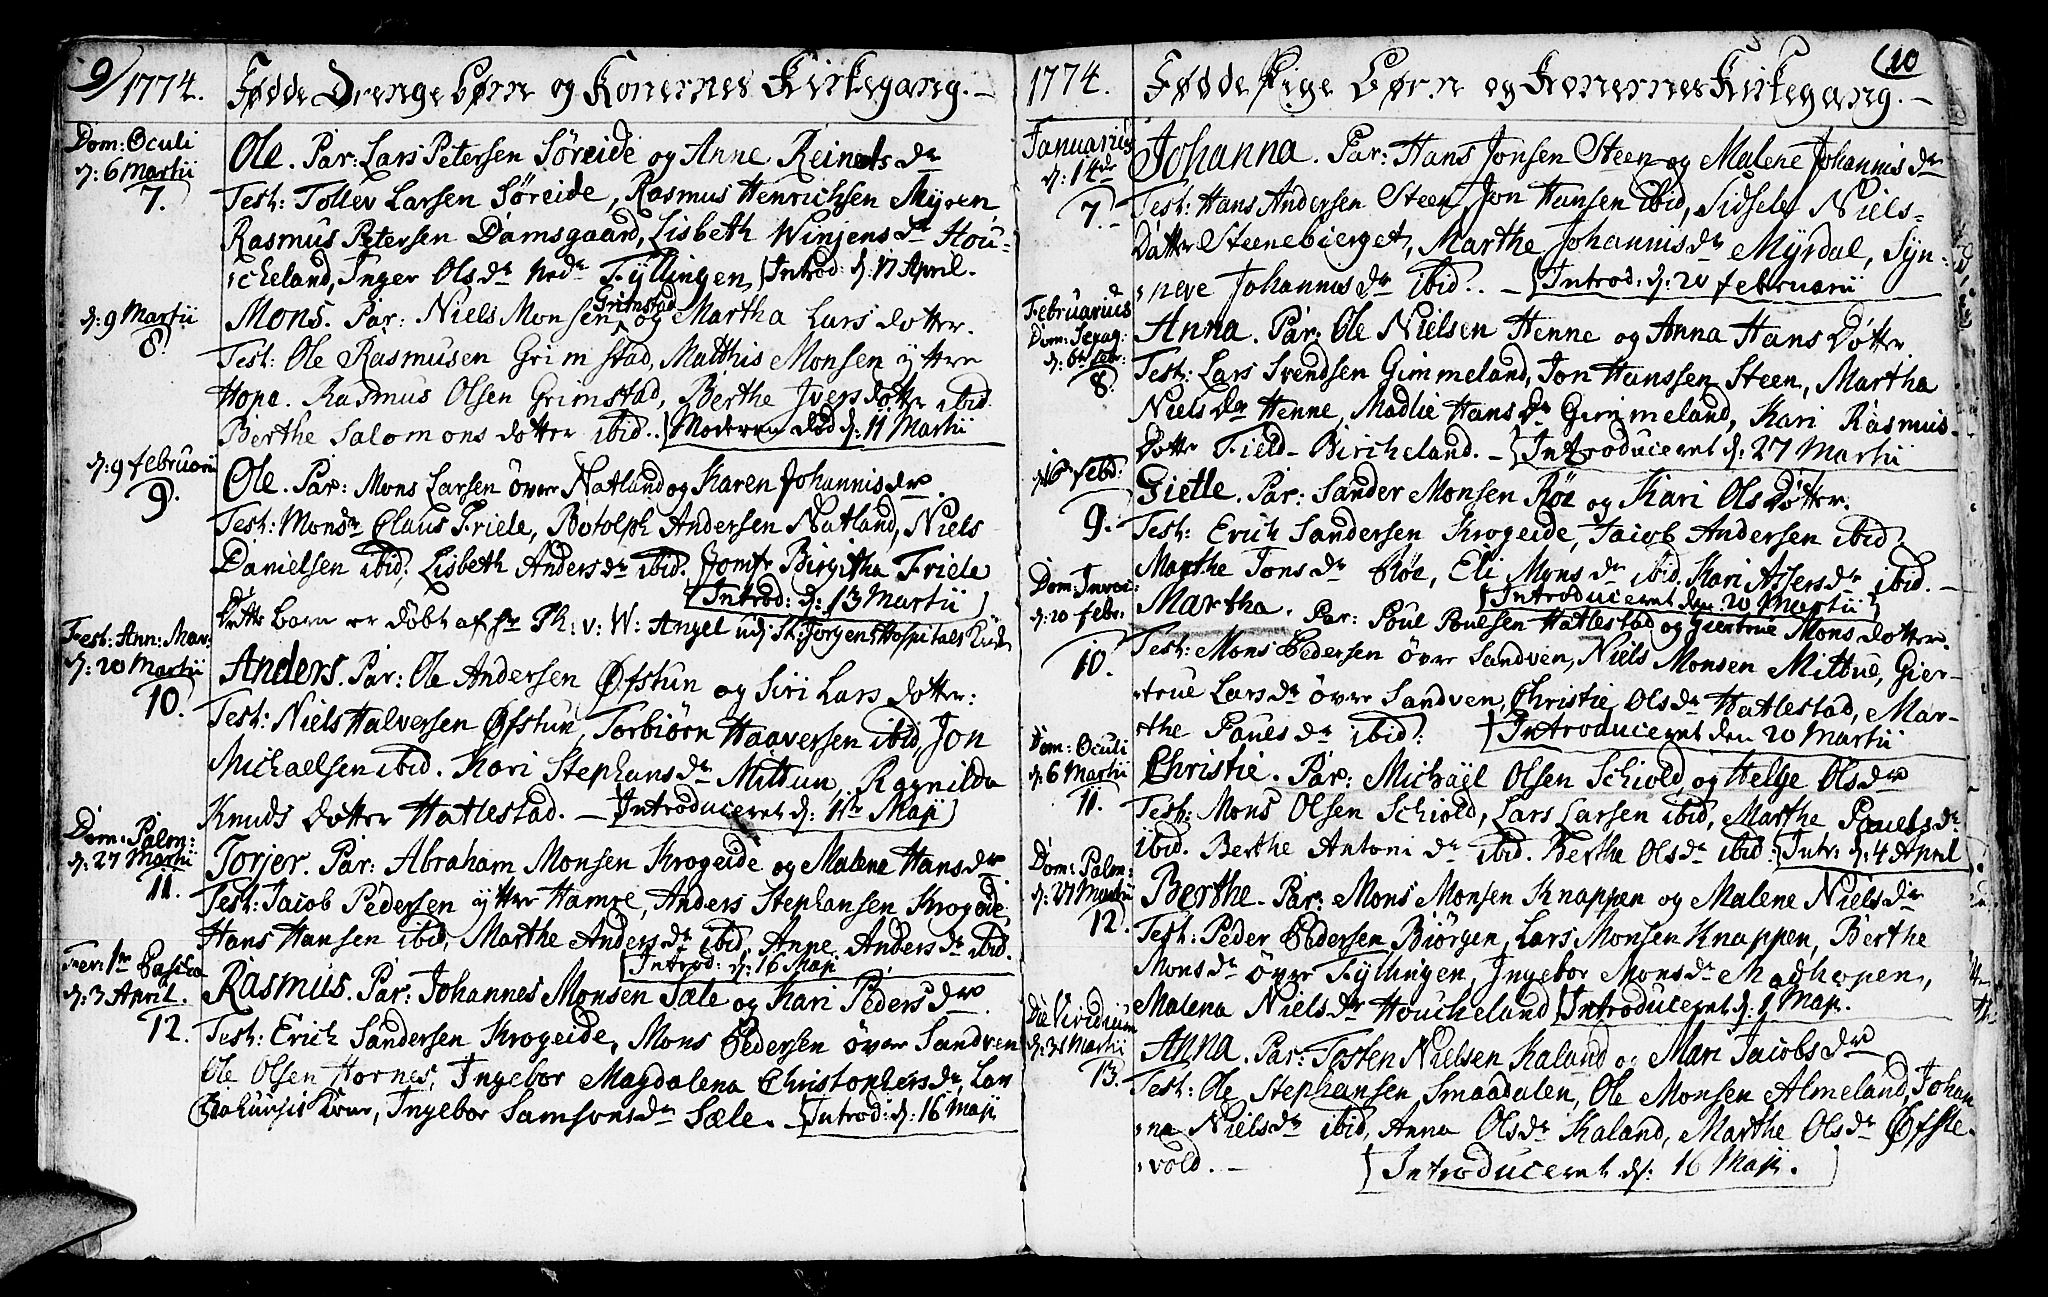 9/ 1774. Fødde Drenge børn og Konernes Kirkegang. -
Dom: Oculi
d: 6 Martii
7.
Ole. Par: Lars Petersen Søreide og Anne Reinets dr
Test: Tollev Larsen Søreide, Rasmus Henrichsen Myren
Rasmus Petersen Damsgaard, Lisbeth Winjens dr Hou-
:scheland, Inger Ols dr Nedr Fyllingen, Introd: d: 17 April.
d: 9 Martii
8.
Mons. Par: Niels Monsen Grimstad og Martha Lars dotter.
Test: Ole Rasmusen Grimstad, Matthis Monsen yttre
Hope. Rasmus Olsen Grimstad, Berthe Ivers dotter ibid.
Berthe Salomons dotter ibid.. Moderen død d: 11 Martii
d: 9 februarii
9.
Ole. Par: Mons Larsen över Natland og Karen Johannis dr.
Test: Monsr Claus Friele, Botolph Andersen Natland, Niels
Danielsen ibid, Lisbeth Anders dr ibid. Jomfr Birgitha Friele
Introd: d: 13 Martii
Dette barn er döbt af Hr Ph: v: W: Angel udj St: Jörgens Hospitals Kirke
Fest: Ann: Mar:
d: 20 Martii
10.
Anders. Par: Ole Andersen Øfstun og Siri Lars dotter:
Test: Niels Halversen Øfstun, Torbiörn Haaversen ibid, Jon
Michaelsen ibid. Kari Stephans dr Mildun, Ragnilda
Knuds dotter Hatlestad. - Introduceret d: 1ste Maji
Dom: Palm:
d: 27 Martii
11.
Torjer. Par: Abraham Monsen Krogeide og Malene Hans dr
Test: Jacob Pedersen yttre Hamre, Anders Stephansen Krogeide,
Hans Hansen ibid, Marthe Anders dr ibid, Anne Anders dr ibid.
Introd: d: 16 Maji
Fer: 1ma Pascha
d: 3 April.
12.
Rasmus. Par: Johannes Monsen Sæle og Kari Peders dr.
Test: Erich Sandersen Krogeide, Mons Pedersen över Sandven
Ole Olsen Hornes, Ingebor Magdalena Christophers dr, Lars
kone, Ingebor Samsons dr Sæle. - Introd: d: 16 Maji
1774. Fødde Pige Børn og Konernes Kirkegang. - (10
Januarius
d: 14de
7.
Johanna. Par: Hans Jonsen Steen og Malene Johannis dr
Test: Hans Andersen Steen, Jon Hansen ibid, Sidsele Niels-
Datter Steenebierget, Marthe Johannis dr Myrdal, Syn-
:neve Johannis dr ibid.. - Introd: d: 20 februarii
Februarius
Dom: Sexag:
d: 6te febr:
8.
Anna. Par: Ole Nielsen Henne og Anna Hans Dotter
Test: Lars Svendsen Gimmeland, Jon Hanssen Steen, Martha
Niels dr Henne, Madlie Hans dr Gimmeland, Kari Rasmus-
Dotter Field-Bircheland. - Introduceret d: 27 Martii
d: 16 febr:
9.
Gietle. Par: Sander Monsen Röe og Kari Ols Dotter.
Test: Erich Sandersen Krogeide, Jacob Andersen ibid
Marthe Jons dr Röe, Eli Mons dr ibid, Kari Assers dr ibid. -
Introduceret den 20 Martii
Dom: Invoc:
d: 20 febr:
10.
Martha. Par: Poul Poulsen Hatlestad og Giertrue Mons dotter.
Test: Mons Pedersen övre Sandven, Niels Monsen Mildue, Gier-
:true Lars dr övre Sandven, Christie Ols dr Hatlestad, Mar-
the Poues dr ibid: Introduceret den 20 Martii
Dom: Oculi
d: 6 Martii
11.
Christie. Par: Michael Olsen Schiold, og Helge Ols dr
Test: Mons Olsen Schiold, Lars Larsen ibid, Marthe Pouels dr
ibid. Berthe Antoni dr ibid. Berthe Ols dr ibid: Intr: d: 4 April
Dom: Palm:
d: 27 Martii
12.
Berthe. Par: Mons Monsen Knappen og Malene Niels dr
Test: Peder Pedersen Biörgen, Lars Monsen Knappen, Berthe
Mons dr övre Fyllingen, Ingebor Mons dr Madhopen,
Malena Niels dr Houcheland Introduceret d: 1 Maji.
Die Viridium
d: 31 Martii
13.
Anna. Par: Tosten Nielsen Kaland og Mari Jacobs dr
Test: Ole Stephansen Smaadalen, Ole Monsen Almeland, Johan
:na Niels dr ibid, Anna Ols dr Kaland, Marthe Ols dr Øfste-
:vold. - Introduceret d: 16 Maji.